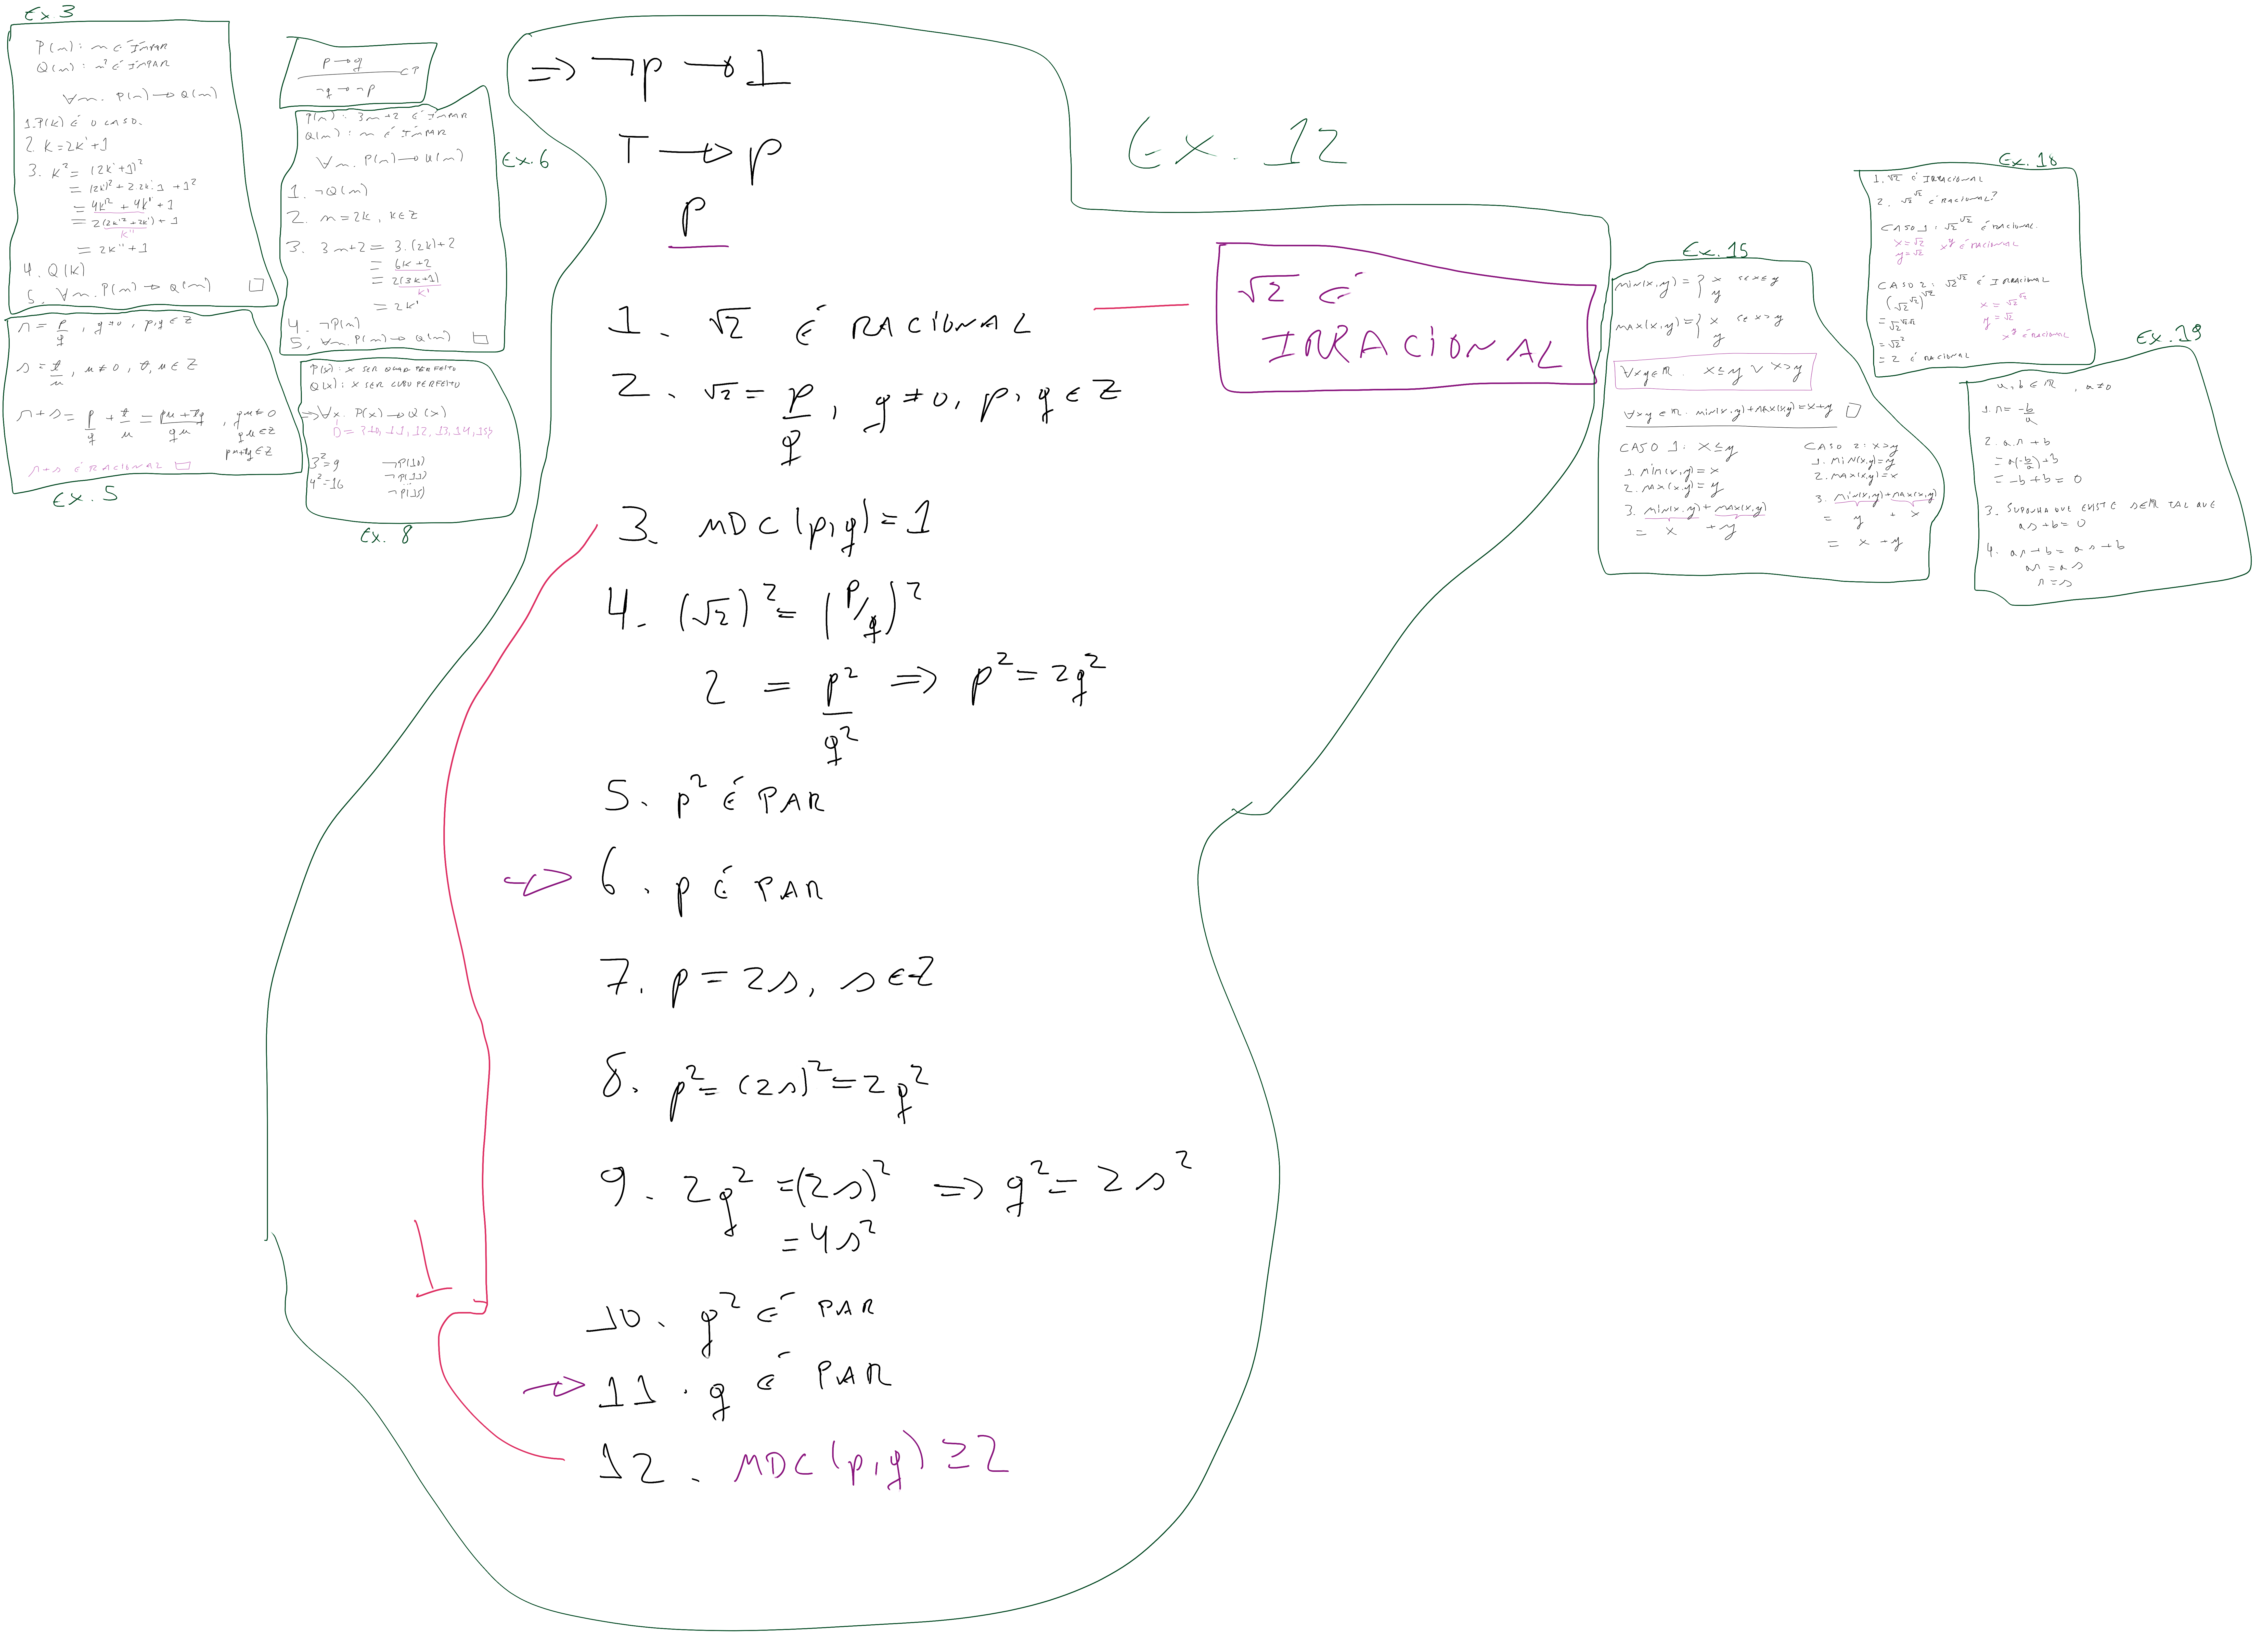 Ex 3
P(n): n É ÍMPAR
Q(n): n² É ÍMPAR
∀n. P(n) → Q(n)
1. P(k) É O CASO.
2. k = 2k' + 1
3. k² = (2k' + 1)²
= (2k')² + 2.2k'.1 + 1²
= 4k'² + 4k' + 1
= 2(2k'² + 2k') + 1
k''
= 2k'' + 1
4. Q(k)
5. ∀n. P(n) → Q(n) □
r = p/q, q ≠ 0, p,q ∈ Z
s = t/u, u ≠ 0, t,u ∈ Z
r + s = p/q + t/u = pu + tq/qu, qu ≠ 0
qu ∈ Z
pu + tq ∈ Z
r + s É RACIONAL □
Ex. 5
p → q
CP
¬q → ¬p
P(n): 3n+2 É ÍMPAR
Q(n): n É ÍMPAR
∀n. P(n) → Q(n)
Ex. 6
1. ¬Q(n)
2. n = 2k, k ∈ Z
3. 3n+2 = 3.(2k)+2
= 6k+2
= 2(3k+1)
k'
= 2k'
4. ¬P(n)
5. ∀n. P(n) → Q(n) □
P(x): X SER QUAD PERFEITO
Q(x): X SER CUBO PERFEITO
⇒ ∀x. P(x) → Q(x)
D = {10, 11, 12, 13, 14, 15}
3² = 9 ¬P(10)
4² = 16 ¬P(11)
⋮
¬P(15)
Ex. 8
⇒ ¬p → ⊥
T → p
p
Ex. 12
√2 É
IRRACIONAL
1. √2 É RACIONAL
2. √2 = p/q, q ≠ 0, p,q ∈ Z
3. MDC(p,q) = 1
4. (√2)² = (p/q)²
2 = p²/q² ⇒ p² = 2q²
5. p² É PAR
→ 6. p É PAR
7. p = 2s, s ∈ Z
8. p² = (2s)² = 2q²
9. 2q² = (2s)² ⇒ q² = 2s²
= 4s²
⊥
10. q² É PAR
→ 11. q É PAR
12. MDC(p,q) ≥ 2
Ex. 15
MIN(x,y) = { x SE x ≤ y
y
MAX(x,y) = { x SE x > y
y
∀x y ∈ R. x ≤ y ∨ x > y
∀x y ∈ R. MIN(x,y) + MAX(x,y) = x + y □
CASO 1: x ≤ y
1. MIN(x,y) = x
2. MAX(x,y) = y
3. MIN(x,y) + MAX(x,y)
= x + y
CASO 2: x > y
1. MIN(x,y) = y
2. MAX(x,y) = x
3. MIN(x,y) + MAX(x,y)
= y + x
= x + y
Ex. 18
1. √2 É IRRACIONAL
2. √2^√2 É RACIONAL?
CASO 1: √2^√2 É RACIONAL.
x = √2 x^y É RACIONAL
y = √2
CASO 2: √2^√2 É IRRACIONAL
(√2^√2)^√2 x = √2^√2
= √2^√2.√2 y = √2
= √2² x^y É RACIONAL
= 2 É RACIONAL
Ex. 19
a, b ∈ R, a ≠ 0
1. r = -b/a
2. a.r + b
= a(-b/a) + b
= -b + b = 0
3. SUPONHA QUE EXISTE S EM R TAL QUE
as + b = 0
4. ar + b = as + b
ar = as
r = s